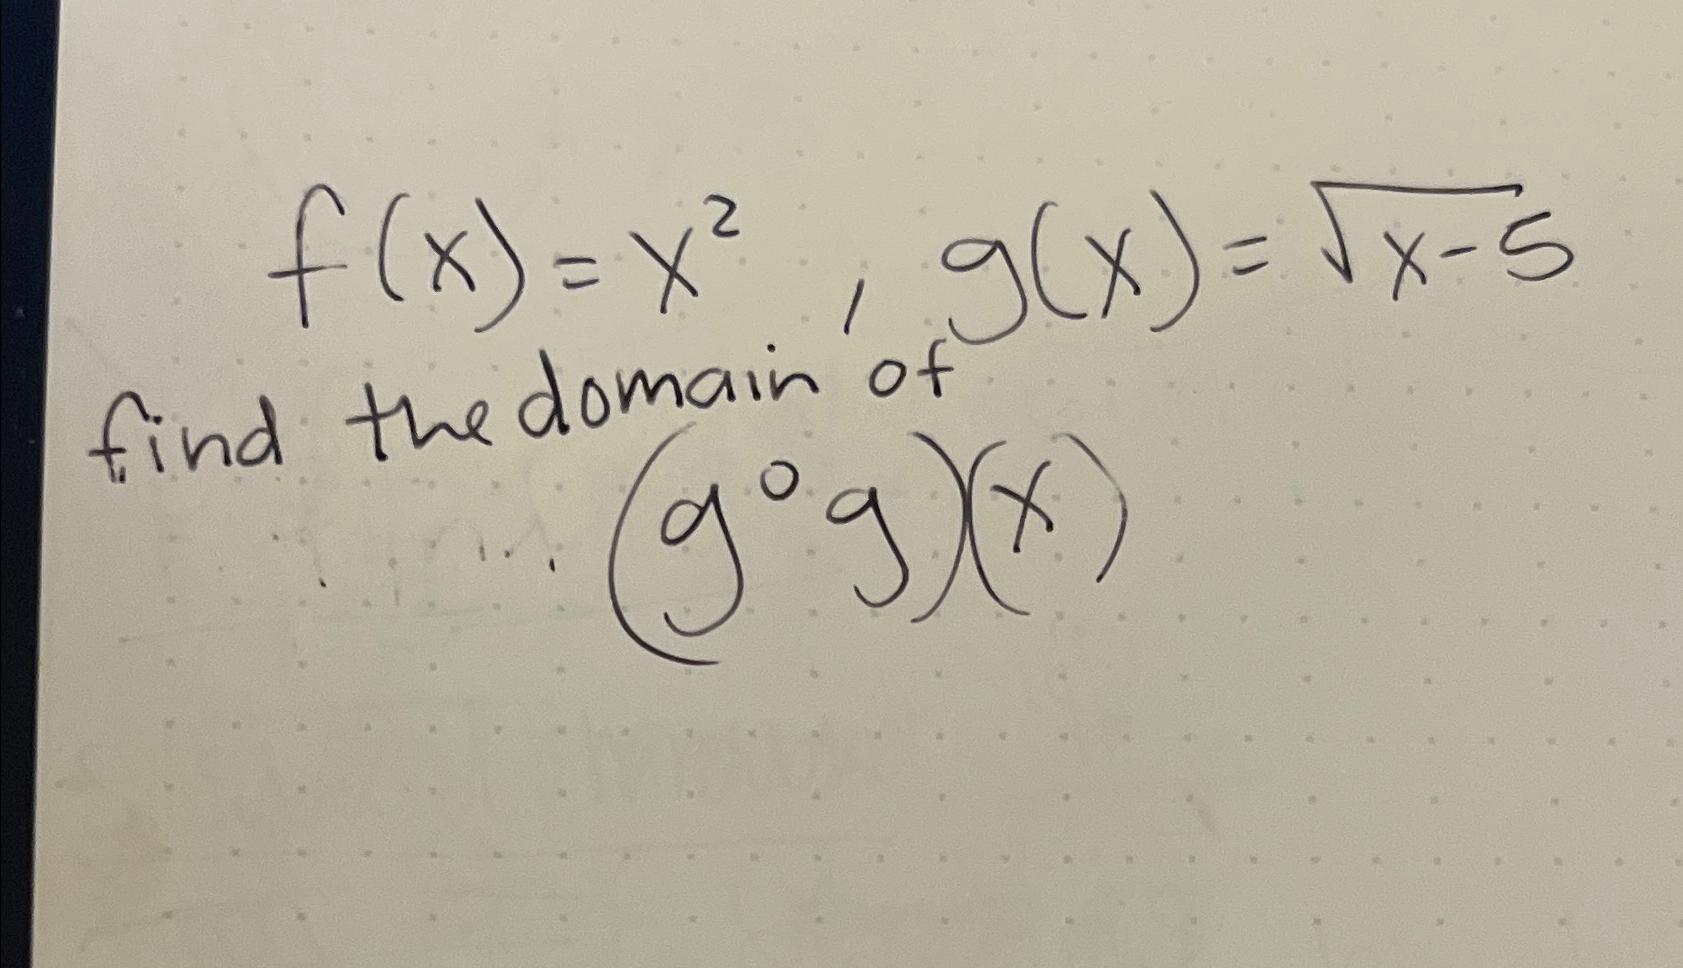 f(x) = x² , g(x) = √x-5
find the domain of
(g∘g)(x)